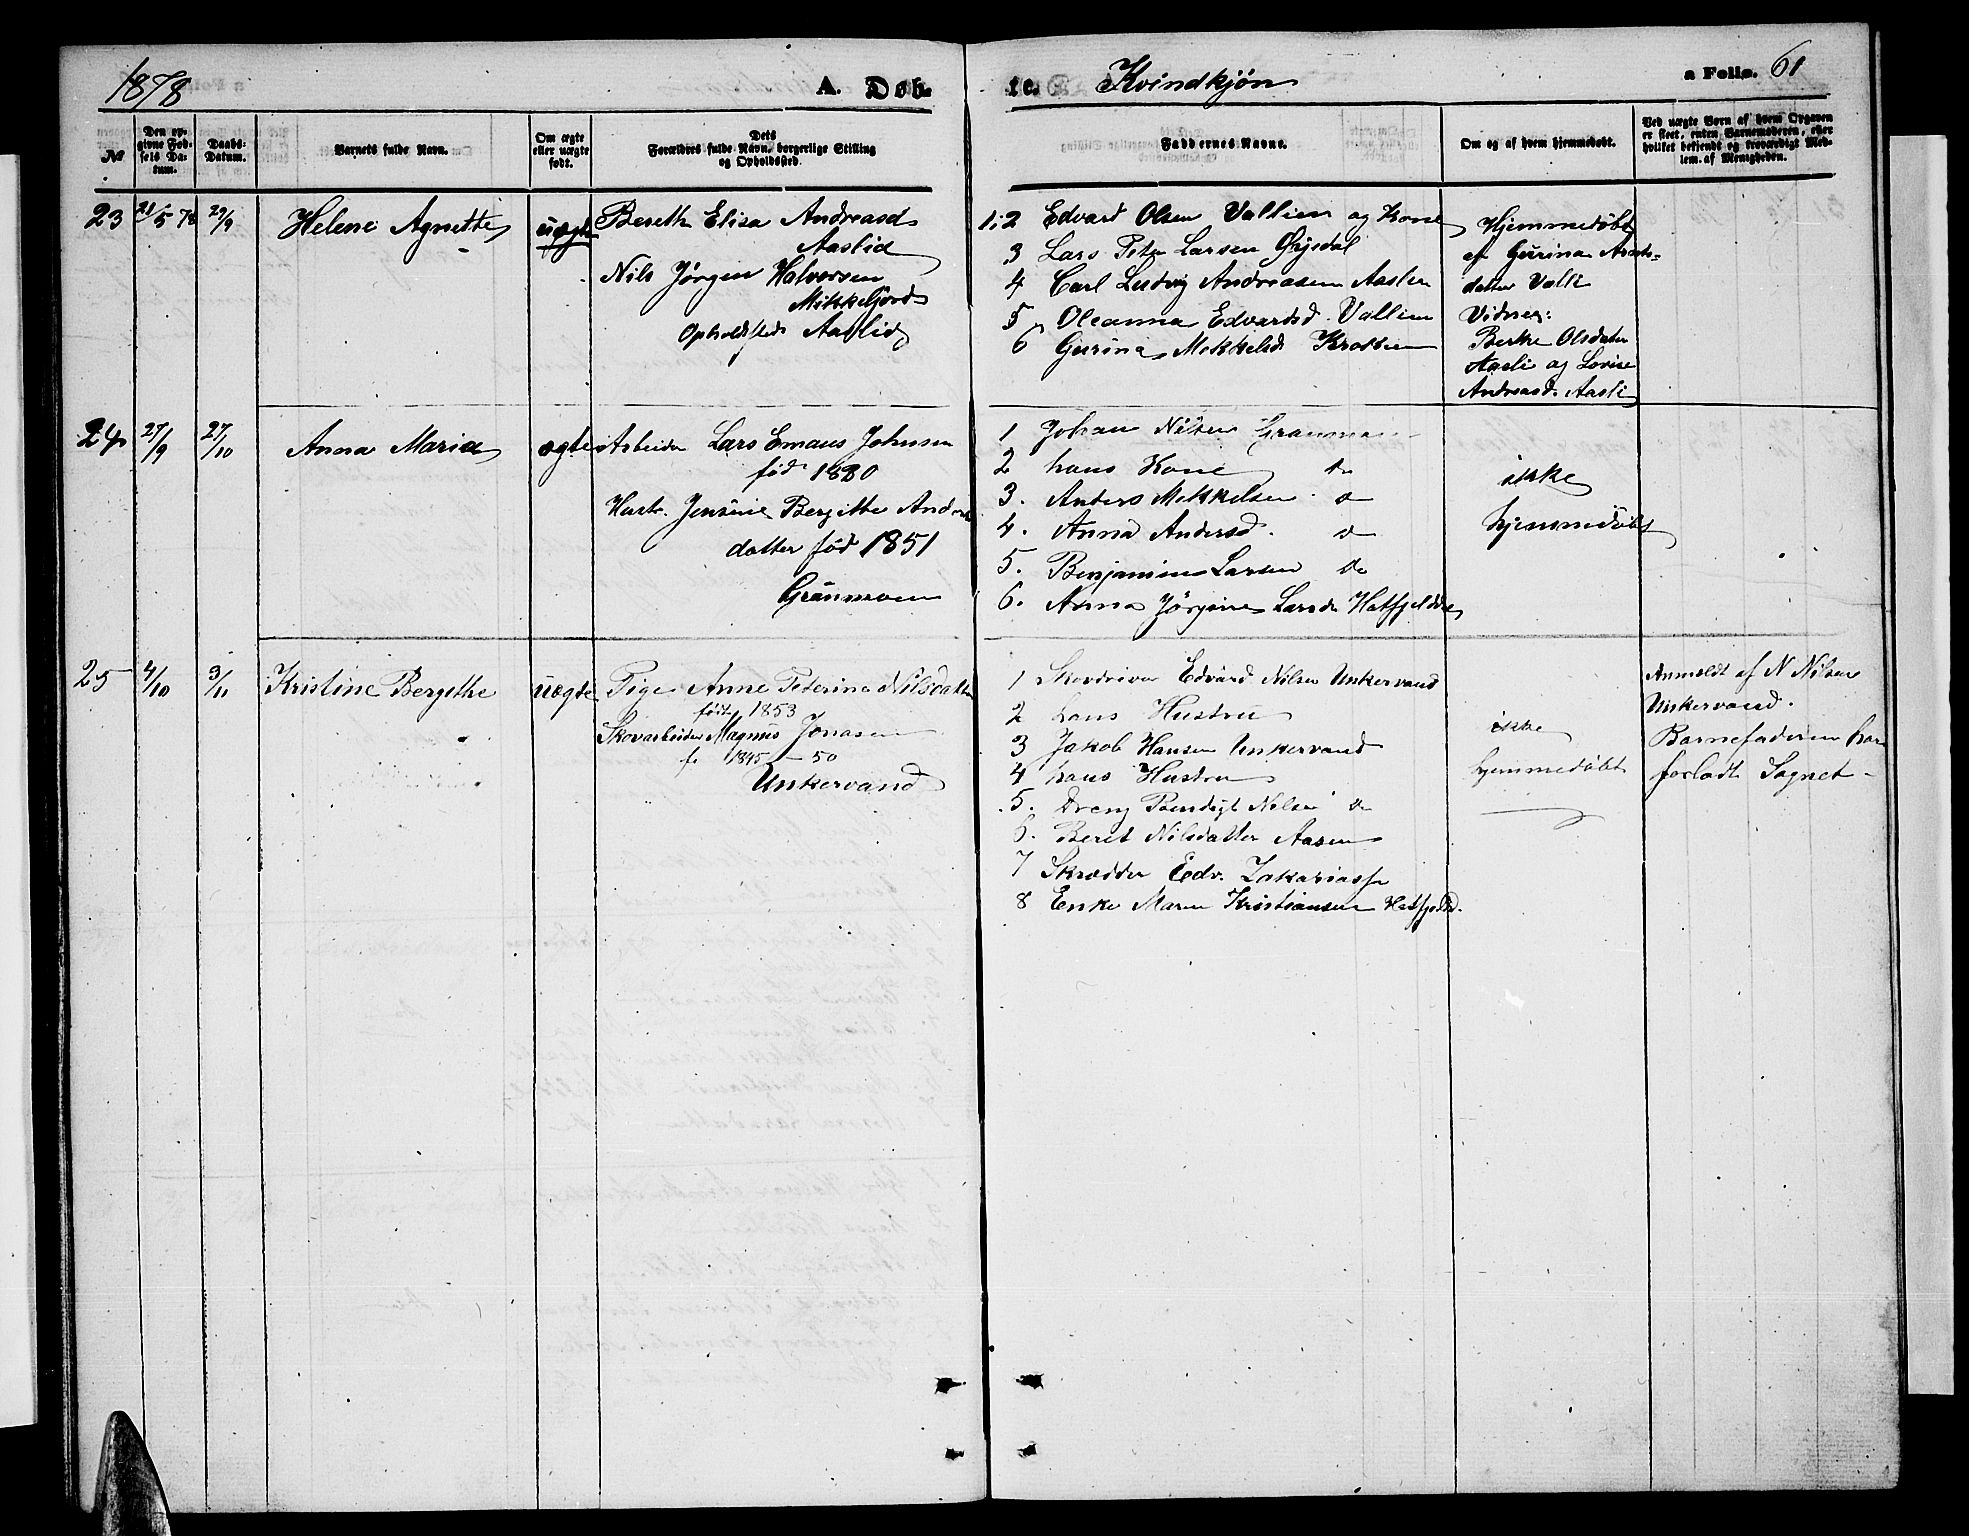 1878 A. Døb- te. Kvindkjøn a Folio. 61
№
Den op-
givne Fød-
sels Da-
tum.
Daabs-
Datum.
Barnets fulde Navn.
Om ægte
eller uægte
født.
Dets
Forældres fulde Navn, borgerlige Stilling
og Opholdssted.
Faddernes Navne.
Om og af hvem hjemmedøbt.
Ved uægte Børn af hvem Opgaven
er skeet, enten Barnemoderen, eller
hvilket bekjendt og troværdigt Med-
lem af Menigheden.
23 21/5 78 29/9 Helene Agnette uægte
Bereth Elisa Andreasd
Aaslid
Nils Jørgen Halvorsen
Mikkeljord
Opholdssted Aaslid
1.2 Edvard Olsen Vallien og Kone
3 Lars Peter Larsen Øyedal
4 Carl Ludvig Andreasen Aaslien
5 Oleanna Edvardsd. Vallien
6 Gurina Mikkelsd Krokken
Hjemmedøbt
af Gurina
datter Valli
Vidner:
Berthe Olsdatter
Aasli og Lovise
Andreasd. Aasli
24 27/9 27/10 Anna Maria ægte
Arbeider Lars Emaus Johnsen
fød 1820
Hustr. Jensine Bergitte Anders
datter fød 1851
Granmoen
1 Johan Nilsen Granmoen
2 hans Kone do
3. Anders Mikkelsen do
4. Anna Andersd. do
5. Benjamin Larsen do
6. Anna Jørgine Larsd. Hatfjelddal
ikke
hjemmedøbt
25 4/10 3/11 Kristine Bergithe uægte
Pige Anne Peterina Nilsdatter
født 1853
Skovarbeider Magnus Jonasen
f. 1845-50
Unkervand
1 Skovdriver Edvard Nilsen Unkervand
2 hans Hustru
3 Jakob Hansen Unkervand
4 hans Hustru
5. Dreng Bendigt Nilsen do
6. Beret Nilsdatter Aasen
7 Skrædder Edv. Zakariass
8 Enke Maren Kristiansen Hatfjeldd.
ikke
hjemmedøbt
Anmeldt af N Nilsen
Unkervand.
Barnefaderen har
forladt Sognet.